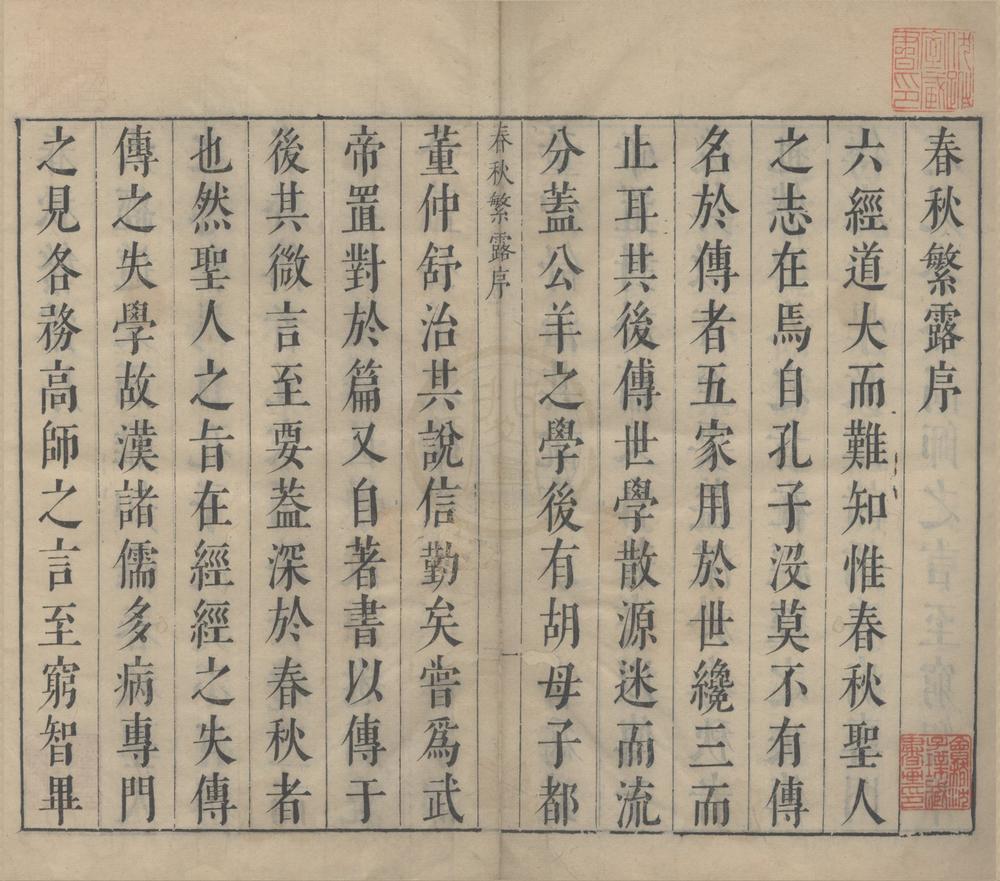 春秋繁露序
六經道大而難知惟春秋聖人
之志在焉自孔子沒莫不有傳
名於傳者五家用於世纔三而
止耳其後傳世學散源迷而流
分蓋公羊之學後有胡母子都
春秋繁露序
一
董仲舒治其說信勤矣嘗爲武
帝置對於篇又自著書以傳于
後其微言至要蓋深於春秋者
也然聖人之旨在經經之失傳
傳之失學故漢諸儒多病專門
之見各務高師之言至窮智畢